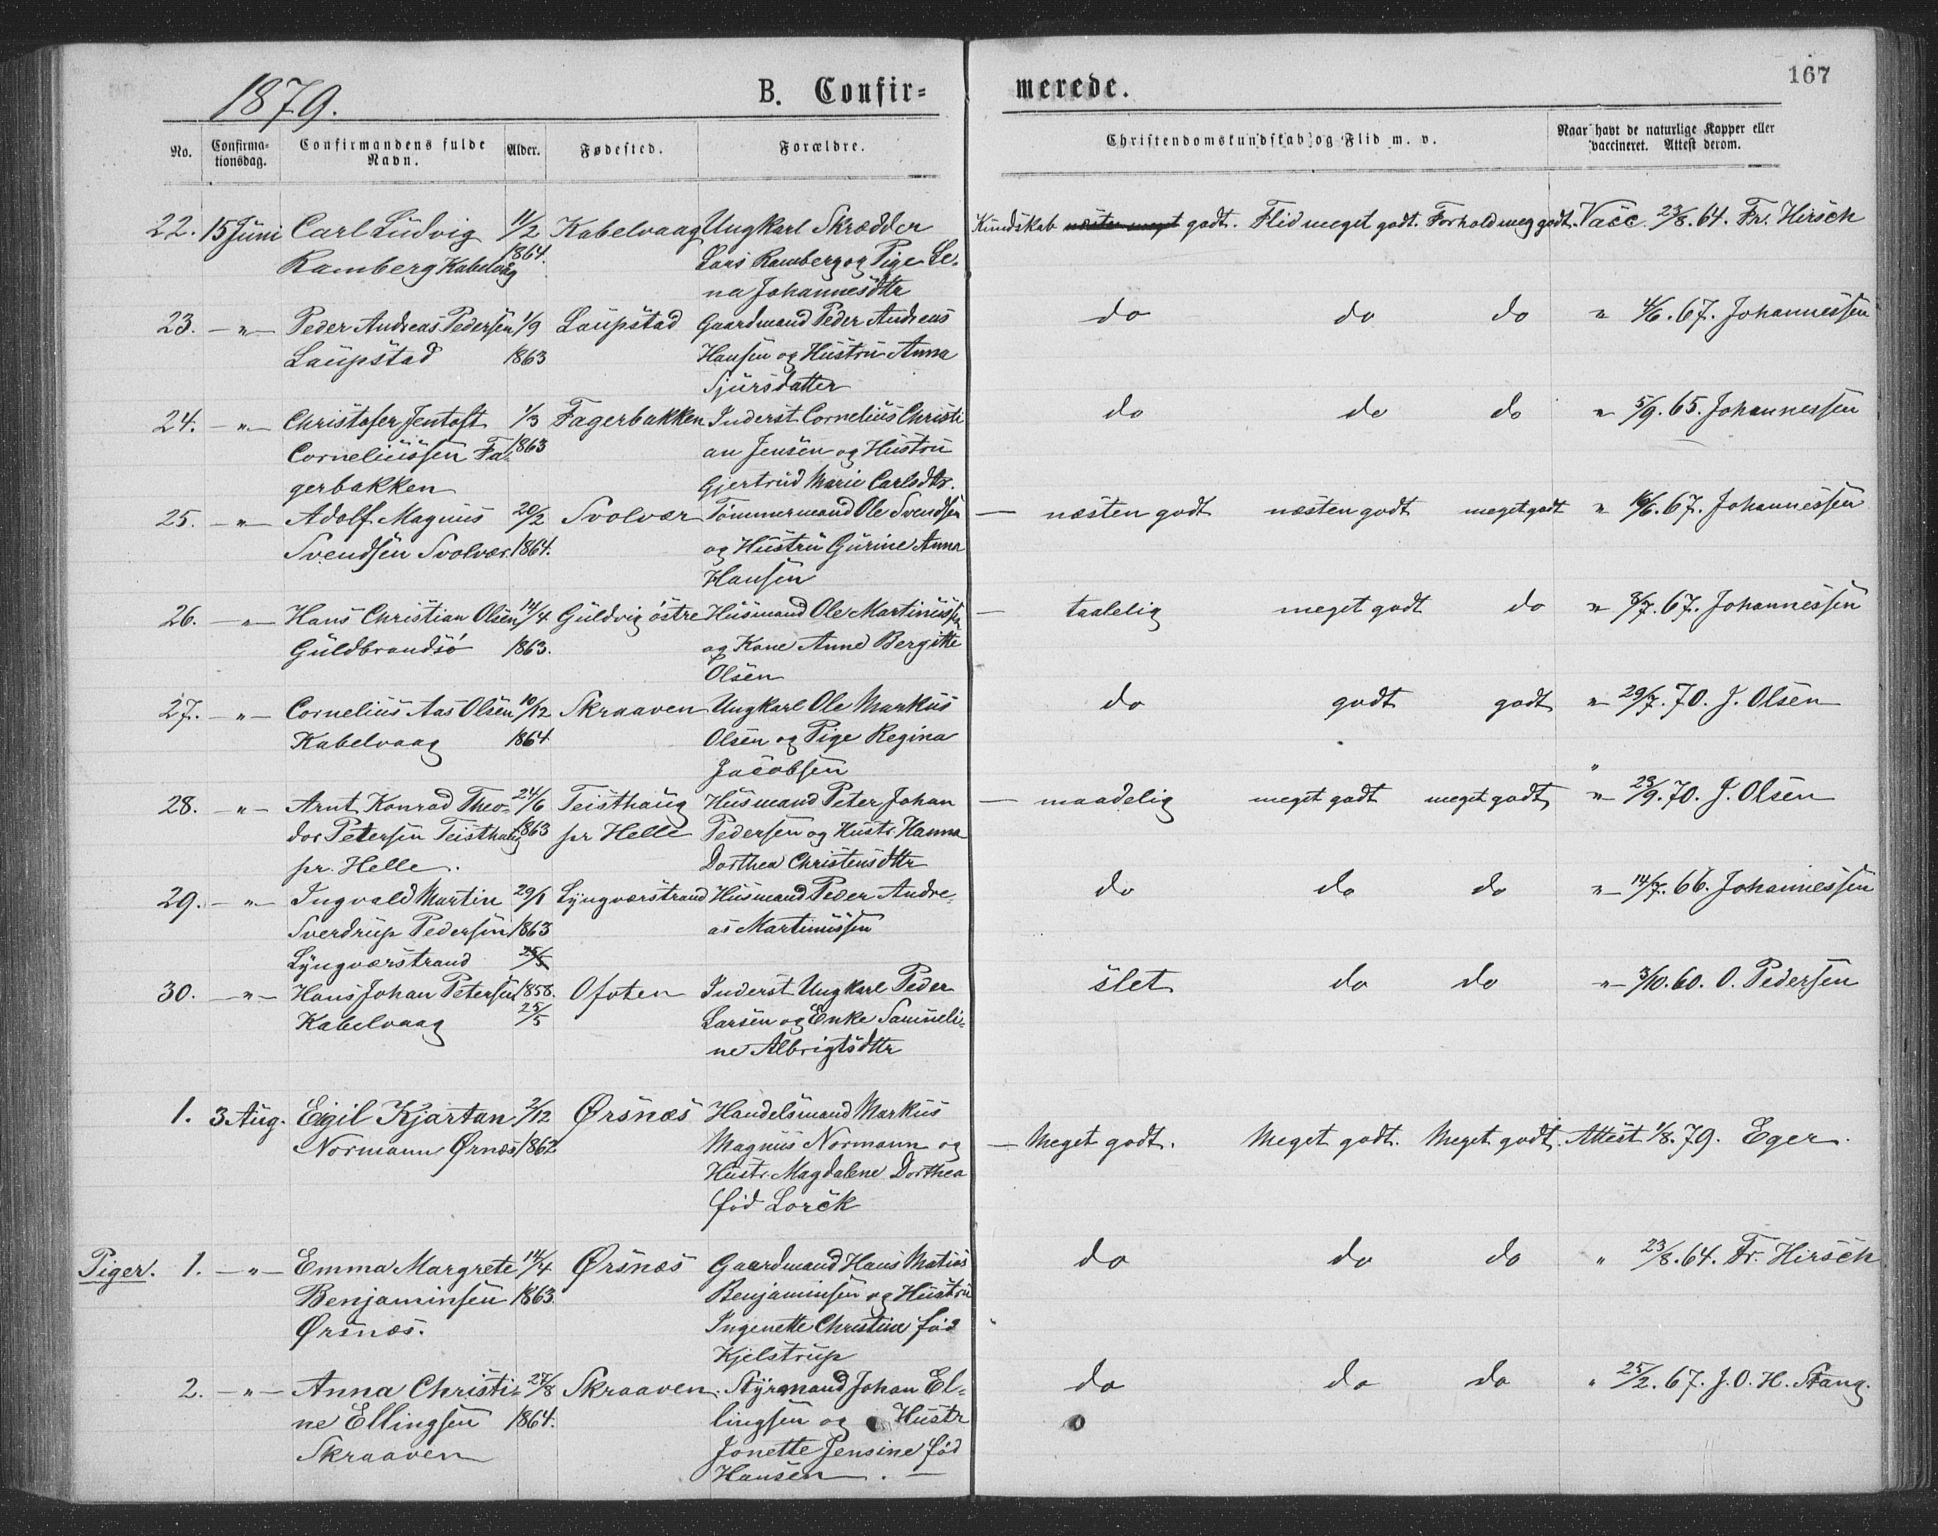 1879.
B. Confir=
merede.
167
No.
Confirma-
tionsdag.
Confirmandens fulde
Navn.
Alder.
Fødested.
Forældre.
Christendomskundskab og Flid m. v.
Naar havt de naturlige Kopper eller
vaccineret. Attest derom.
22. 15 Juni Carl Ludvig 11/2 Kabelvaag Ungkarl Skrædder Kundskab næsten meget godt. Flid meget godt. Forhold meg godt. Vacc. 23/8. 64. Fr. Hirsch
Ramberg Kabelvåg 1864. Lars Ramberg og Pige Le-
na Johannesdtr
23. -"- Peder Andreas Pedersen 1/9 Laupstad Gaardmand Peder Andreas do do do " 4/6. 67. Johannessen
Laupstad 1863 Hansen og Hustru Anna
Sjursdatter
24. -"- Christofer Jentoft 1/3 Fagerbakken Inderst Cornelius Christi do do do " 5/9. 65. Johannessen
Corneliussen Fa- 1863 an Jensen og Hustru
gerbakken Gjertrud Marie Carlsdtr.
25. -"- Adolf Magnus 20/2 Svolvær Tømmermand Ole Svendsen — næsten godt næsten godt meget godt " 16/6. 67. Johannessen
Svendsen Svolvær 1864. og Hustru Gurine Anna
Hansen
26. -"- Hans Christian Olsen 14/4 Guldvig östre Husmand Ole Martinussen — taalelig meget godt do " 8/7. 67. Johannessen
Guldbrandsö 1863. og Kone Anne Bergitte
Olsen
27. -"- Cornelius Aas Olsen 10/12 Skraaven Ungkarl Ole Markus do godt godt " 29/7. 70. J. Olsen
Kabelvaag 1864 Olsen og Pige Regina
Jacobsen
28. -"- Arnt Konrad Theo- 24/6 Teisthaug Husmand Peter Johan — maadelig meget godt meget godt " 23/9. 70. J. Olsen
dor Petersen Teisthaug 1863 pr Helle Pedersen og Hustr. Hanna
pr. Helle. Dorthea Christensdtr
29. -"- Ingvald Martin 29/1 Lyngværstrand Husmand Peder Andre- do do do " 14/7. 66. Johannessen
Sverdrup Pedersen 1863 as Martinussen
Lyngværstrand 25/5
30. -"- Hans Johan Petersen 1858. Ofoten Inderst Ungkarl Peder slet do do " 3/10. 60. O. Pedersen
Kabelvaag 25/5 Larsen og Enke Samueli-
ne Albrigtsdtr
1. 3 Aug. Egil Kjartan 2/12 Ørsnæs Handelsmand Markus
Normann Ørnæs 1862 Magnus Normann og — Meget godt. Meget godt. Meget godt. Attest 1/8. 79. Eger.
Hustr. Magdalene Dorthea
föd Lorck
Piger. 1. -"- Emma Margrete 14/4 Ørsnæs Gaardmand Hans Matias do do do " 23/8. 64. Fr. Hirsch
Benjaminsen 1863. Benjaminsen og Hustru
Ørsnæs. Ingenette Christine föd
Kjelstrup
2. -"- Anna Christi- 27/8 Skraaven. Styrmand Johan El- do do do " 25/2. 67. J. O. H. Stang.
ne Ellingsen 1864. lingsen og Hustr
Skraaven Jonette Jensine föd
Hansen. —